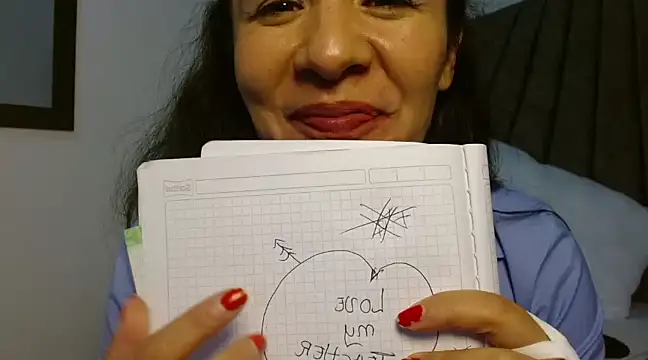 LOVE
my
TEACHER